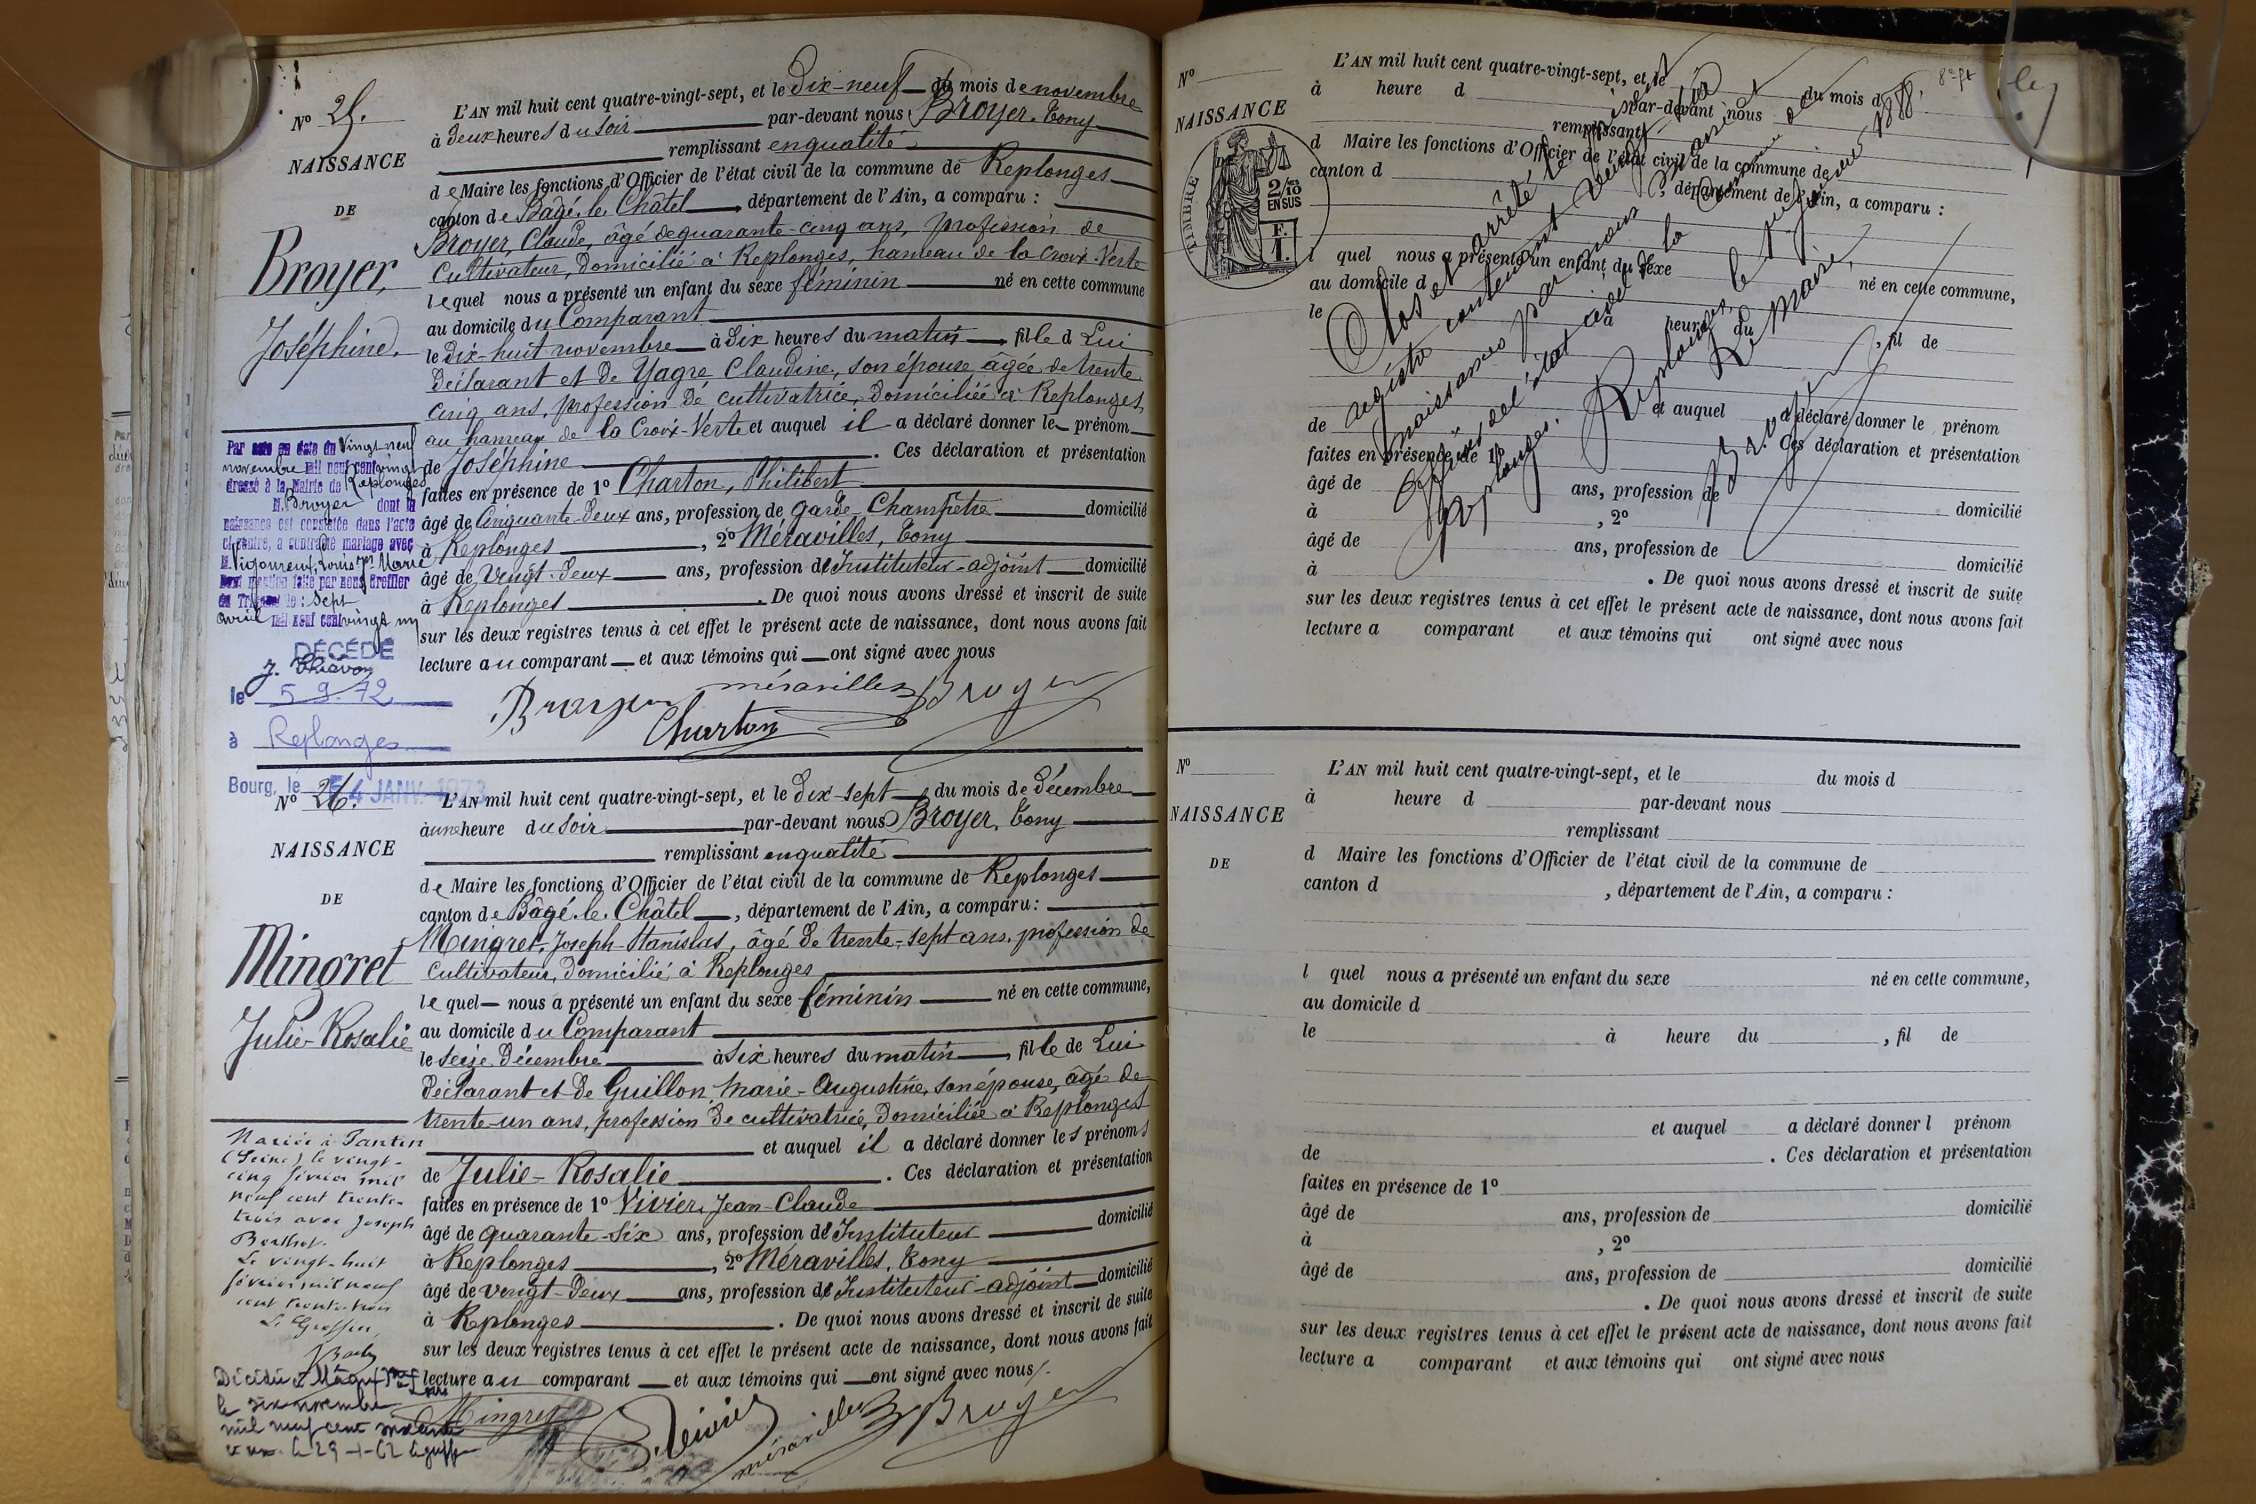 N° 25.
NAISSANCE
DE
Broyer,
Joséphine.
L'AN mil huit cent quatre-vingt-sept, et le dix-neuf du mois de novembre
à deux heures du soir par-devant nous Broyer, Tony
remplissant en qualité
de Maire les fonctions d'Officier de l'état civil de la commune de Replonges
canton de Bâgé-le-Châtel, département de l'Ain, a comparu :
Broyer, Claude, âgé de quarante-cinq ans, profession de
cultivateur, domicilié à Replonges, hameau de la Croix-Verte
lequel nous a présenté un enfant du sexe féminin né en cette commune
au domicile du Comparant
le dix-huit novembre à six heures du matin, fille d Lui
déclarant et de Yagre Claudine, son épouse, âgée de trente
cinq ans, profession de cultivatrice, domiciliée à Replonges,
au hameau de la Croix-Verte et auquel il a déclaré donner le prénom
de Joséphine. Ces déclaration et présentation
faites en présence de 1° Charton, Philibert
âgé de cinquante-deux ans, profession de garde-Champêtre domicilié
à Replonges, 2° Méravilles, Tony
âgé de vingt-deux ans, profession d'Instituteur-adjoint domicilié
à Replonges. De quoi nous avons dressé et inscrit de suite
sur les deux registres tenus à cet effet le présent acte de naissance, dont nous avons fait
lecture au comparant et aux témoins qui ont signé avec nous
Broyer méravilles Broyer
Charton
Par acte en date du Vingt neuf
novembre mil neuf cent vingt
dressé à la Mairie de Replonges
M. Broyer dont la
naissance est constatée dans l'acte
ci-contre, a contracté mariage avec
M. Louis Marie
mention faite par nous Greffier
du Tribunal le : Sept
avril mil neuf cent vingt un
DÉCÉDÉ
le 5.9.72
à Replonges
Bourg, le 4 JANV. 1973
N° 26.
NAISSANCE
DE
Mingret
Julie-Rosalie
L'AN mil huit cent quatre-vingt-sept, et le dix-sept du mois de décembre
à une heure du soir par-devant nous Broyer, Tony
remplissant en qualité
de Maire les fonctions d'Officier de l'état civil de la commune de Replonges
canton de Bâgé-le-Châtel, département de l'Ain, a comparu :
Mingret, Joseph-Stanislas, âgé de trente-sept ans, profession de
cultivateur, domicilié à Replonges
lequel nous a présenté un enfant du sexe féminin né en cette commune,
au domicile du Comparant
le seize décembre à six heures du matin, fille de Lui
déclarant et de Guillon, Marie-Augustine, son épouse, âgé de
trente-un ans, profession de cultivatrice, domiciliée à Replonges
et auquel il a déclaré donner les prénoms
de Julie-Rosalie. Ces déclaration et présentation
faites en présence de 1° Vivier, Jean-Claude
âgé de quarante-six ans, profession d'Instituteur domicilié
à Replonges, 2° Méravilles, Tony
âgé de vingt-deux ans, profession d'Instituteur-adjoint domicilié
à Replonges. De quoi nous avons dressé et inscrit de suite
sur les deux registres tenus à cet effet le présent acte de naissance, dont nous avons fait
lecture au comparant et aux témoins qui ont signé avec nous.
Mingret Vivier méravilles Broyer
Mariée à Pantin
(Seine) le vingt-
cinq février mil
neuf cent trente-
trois avec Joseph
Berthet.
Le vingt-huit
février mil neuf
cent trente-trois
Le Greffier,
Décédée à
le six novembre
mil neuf cent soixante
N°
NAISSANCE
DE
TIMBRE
2/10
EN SUS
F.
1.
L'AN mil huit cent quatre-vingt-sept, et le du mois d
à heure d par-devant nous
remplissant
d Maire les fonctions d'Officier de l'état civil de la commune de
canton d , département de l'Ain, a comparu :
l quel nous a présenté un enfant du sexe
au domicile d né en cette commune,
le à heure du , fil de
et auquel a déclaré donner le prénom
de Ces déclaration et présentation
faites en présence de 1°
âgé de ans, profession de
à , 2° domicilié
âgé de ans, profession de
à domicilié
. De quoi nous avons dressé et inscrit de suite
sur les deux registres tenus à cet effet le présent acte de naissance, dont nous avons fait
lecture a comparant et aux témoins qui ont signé avec nous
Clos et arrêté le présent
registre contenant vingt-six
naissances par nous Maire et
Officier de l'état civil de la Commune de
Replonges. Replonges, le 1er janvier 1888.
Le Maire,
Broyer
N°
NAISSANCE
DE
L'AN mil huit cent quatre-vingt-sept, et le du mois d
à heure d par-devant nous
remplissant
d Maire les fonctions d'Officier de l'état civil de la commune de
canton d , département de l'Ain, a comparu :
l quel nous a présenté un enfant du sexe né en cette commune,
au domicile d
le à heure du , fil de
et auquel a déclaré donner l prénom
de . Ces déclaration et présentation
faites en présence de 1°
âgé de ans, profession de domicilié
à , 2°
âgé de ans, profession de domicilié
. De quoi nous avons dressé et inscrit de suite
sur les deux registres tenus à cet effet le présent acte de naissance, dont nous avons fait
lecture a comparant et aux témoins qui ont signé avec nous